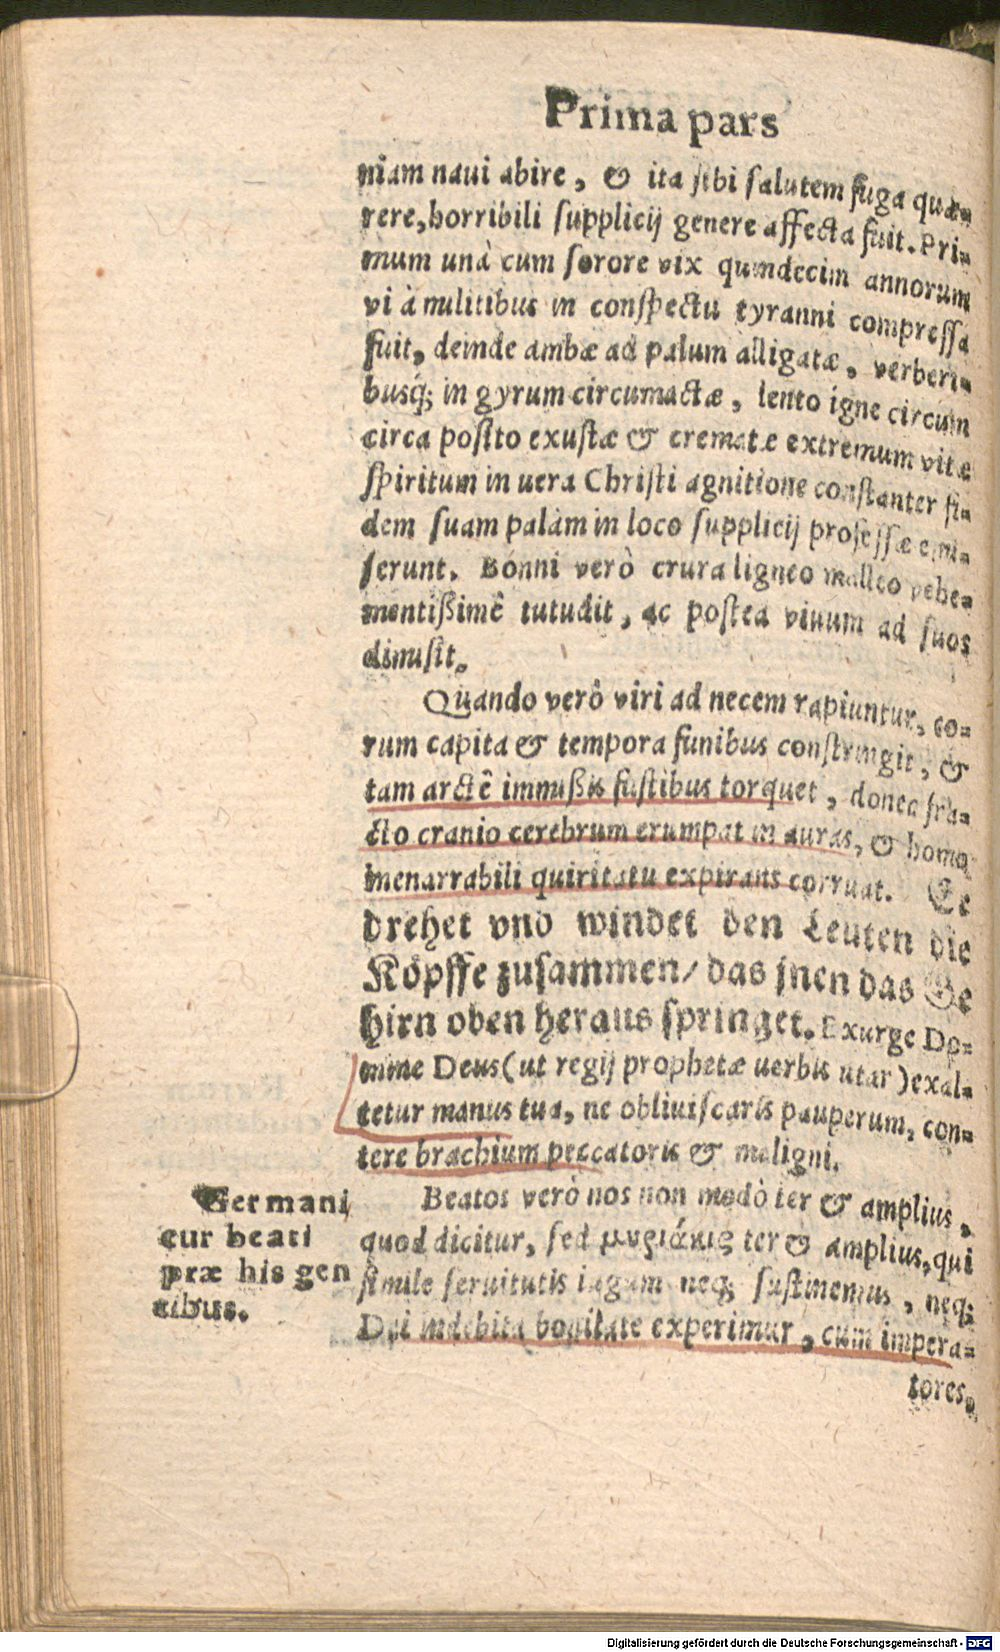 Prima pars
niam naui abire, & ita sibi salutem fuga quæ-
rere, horribili supplicij genere affecta fuit. Pri-
mum unà cum sorore vix quindecim annorum
vi à militibus in conspectu tyranni compressa
fuit, deinde ambæ ad palum alligatæ, verberi-
busq́; in gyrum circumactæ, lento igne circum
circa posito exustæ & crematæ extremum vitæ
spiritum in uera Christi agnitione constanter fi-
dem suam palàm in loco supplicij professæ emi-
serunt. Bonni verò crura ligneo malleo vehe-
mentißimè tutudit, ac postea viuum ad suos
dimisit.
Quando verò viri ad necem rapiuntur, eo-
rum capita & tempora funibus constringit, &
tam arctè immißis fustibus torquet, donec fra-
cto cranio cerebrum erumpat in auras, & homo
inenarrabili quiritatu expirans corruat. Er
drehet vnd windet den Leuten die
Köpffe zusammen/ das jnen das Ge
hirn oben heraus springet. Exurge Do-
mine Deus (ut regij prophetæ uerbis utar) exal-
tetur manus tua, ne obliuiscaris pauperum, con-
tere brachium peccatoris & maligni.
Beatos verò nos non modò ter & amplius,
quod dicitur, sed μυριάκις ter & amplius, qui
simile seruitutis iugum neq; sustinemus, neq;
Dei indebita bonitate experimur, cum impera-
tores,
Germani
cur beati
præ his gen
tibus.
Digitalisierung gefördert durch die Deutsche Forschungsgemeinschaft - DFG